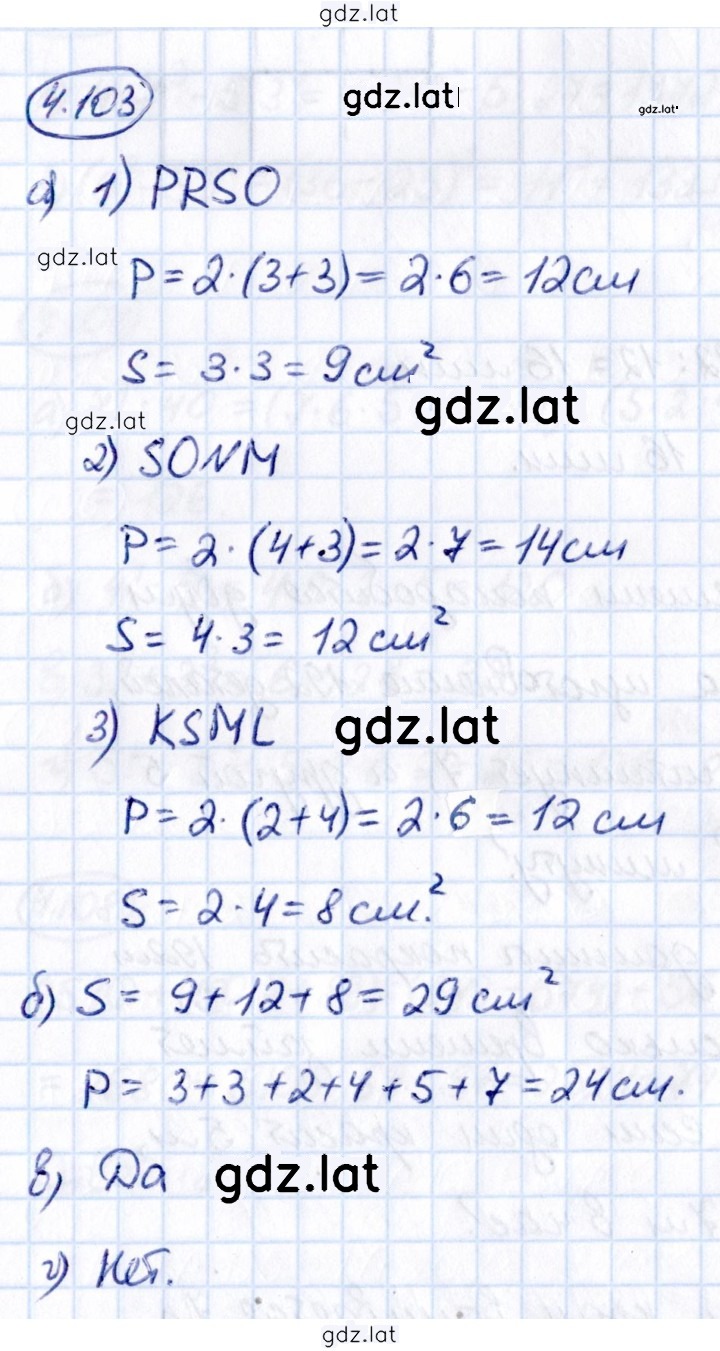 gdz.lat
4.103
gdz.lat
gdz.lat
а) 1) PRSO
gdz.lat
P = 2·(3+3) = 2·6 = 12 см
S = 3·3 = 9 см²
gdz.lat
gdz.lat
2) SONM
P = 2·(4+3) = 2·7 = 14 см
S = 4·3 = 12 см²
3) KSML
gdz.lat
P = 2·(2+4) = 2·6 = 12 см
S = 2·4 = 8 см².
б) S = 9+12+8 = 29 см²
P = 3+3+2+4+5+7 = 24 см.
в) Да
gdz.lat
г) Нет.
gdz.lat